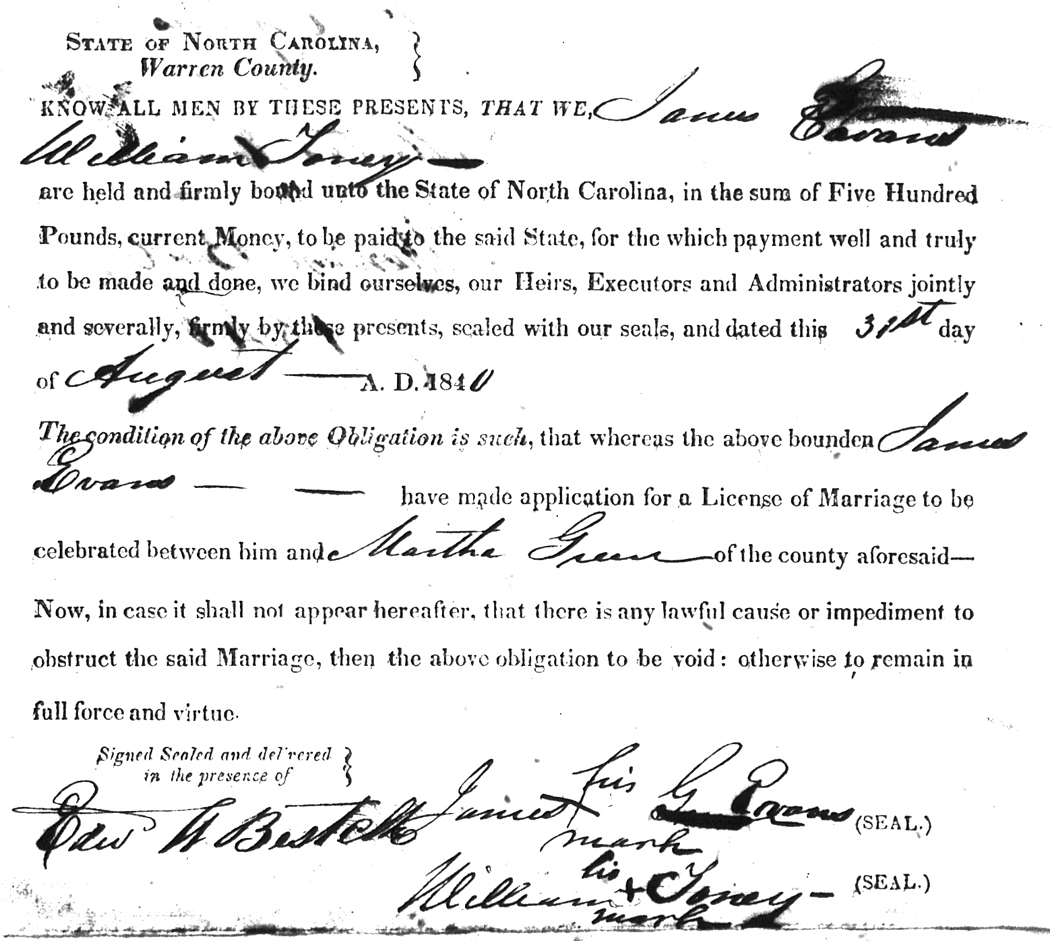 STATE OF NORTH CAROLINA,
Warren County.
KNOW ALL MEN BY THESE PRESENTS, THAT WE, James Evans
William Toney
are held and firmly bound unto the State of North Carolina, in the sum of Five Hundred
Pounds, current Money, to be paid to the said State, for the which payment well and truly
to be made and done, we bind ourselves, our Heirs, Executors and Administrators jointly
and severally, firmly by these presents, sealed with our seals, and dated this 31st day
of August — A. D. 1840
The condition of the above Obligation is such, that whereas the above bounden James
Evans — — have made application for a License of Marriage to be
celebrated between him and Martha Green of the county aforesaid—
Now, in case it shall not appear hereafter, that there is any lawful cause or impediment to
obstruct the said Marriage, then the above obligation to be void: otherwise to remain in
full force and virtue.
Signed Sealed and delivered
in the presence of
his
James X G Evans (SEAL.)
mark
Edw
his
William + Toney — (SEAL.)
mark